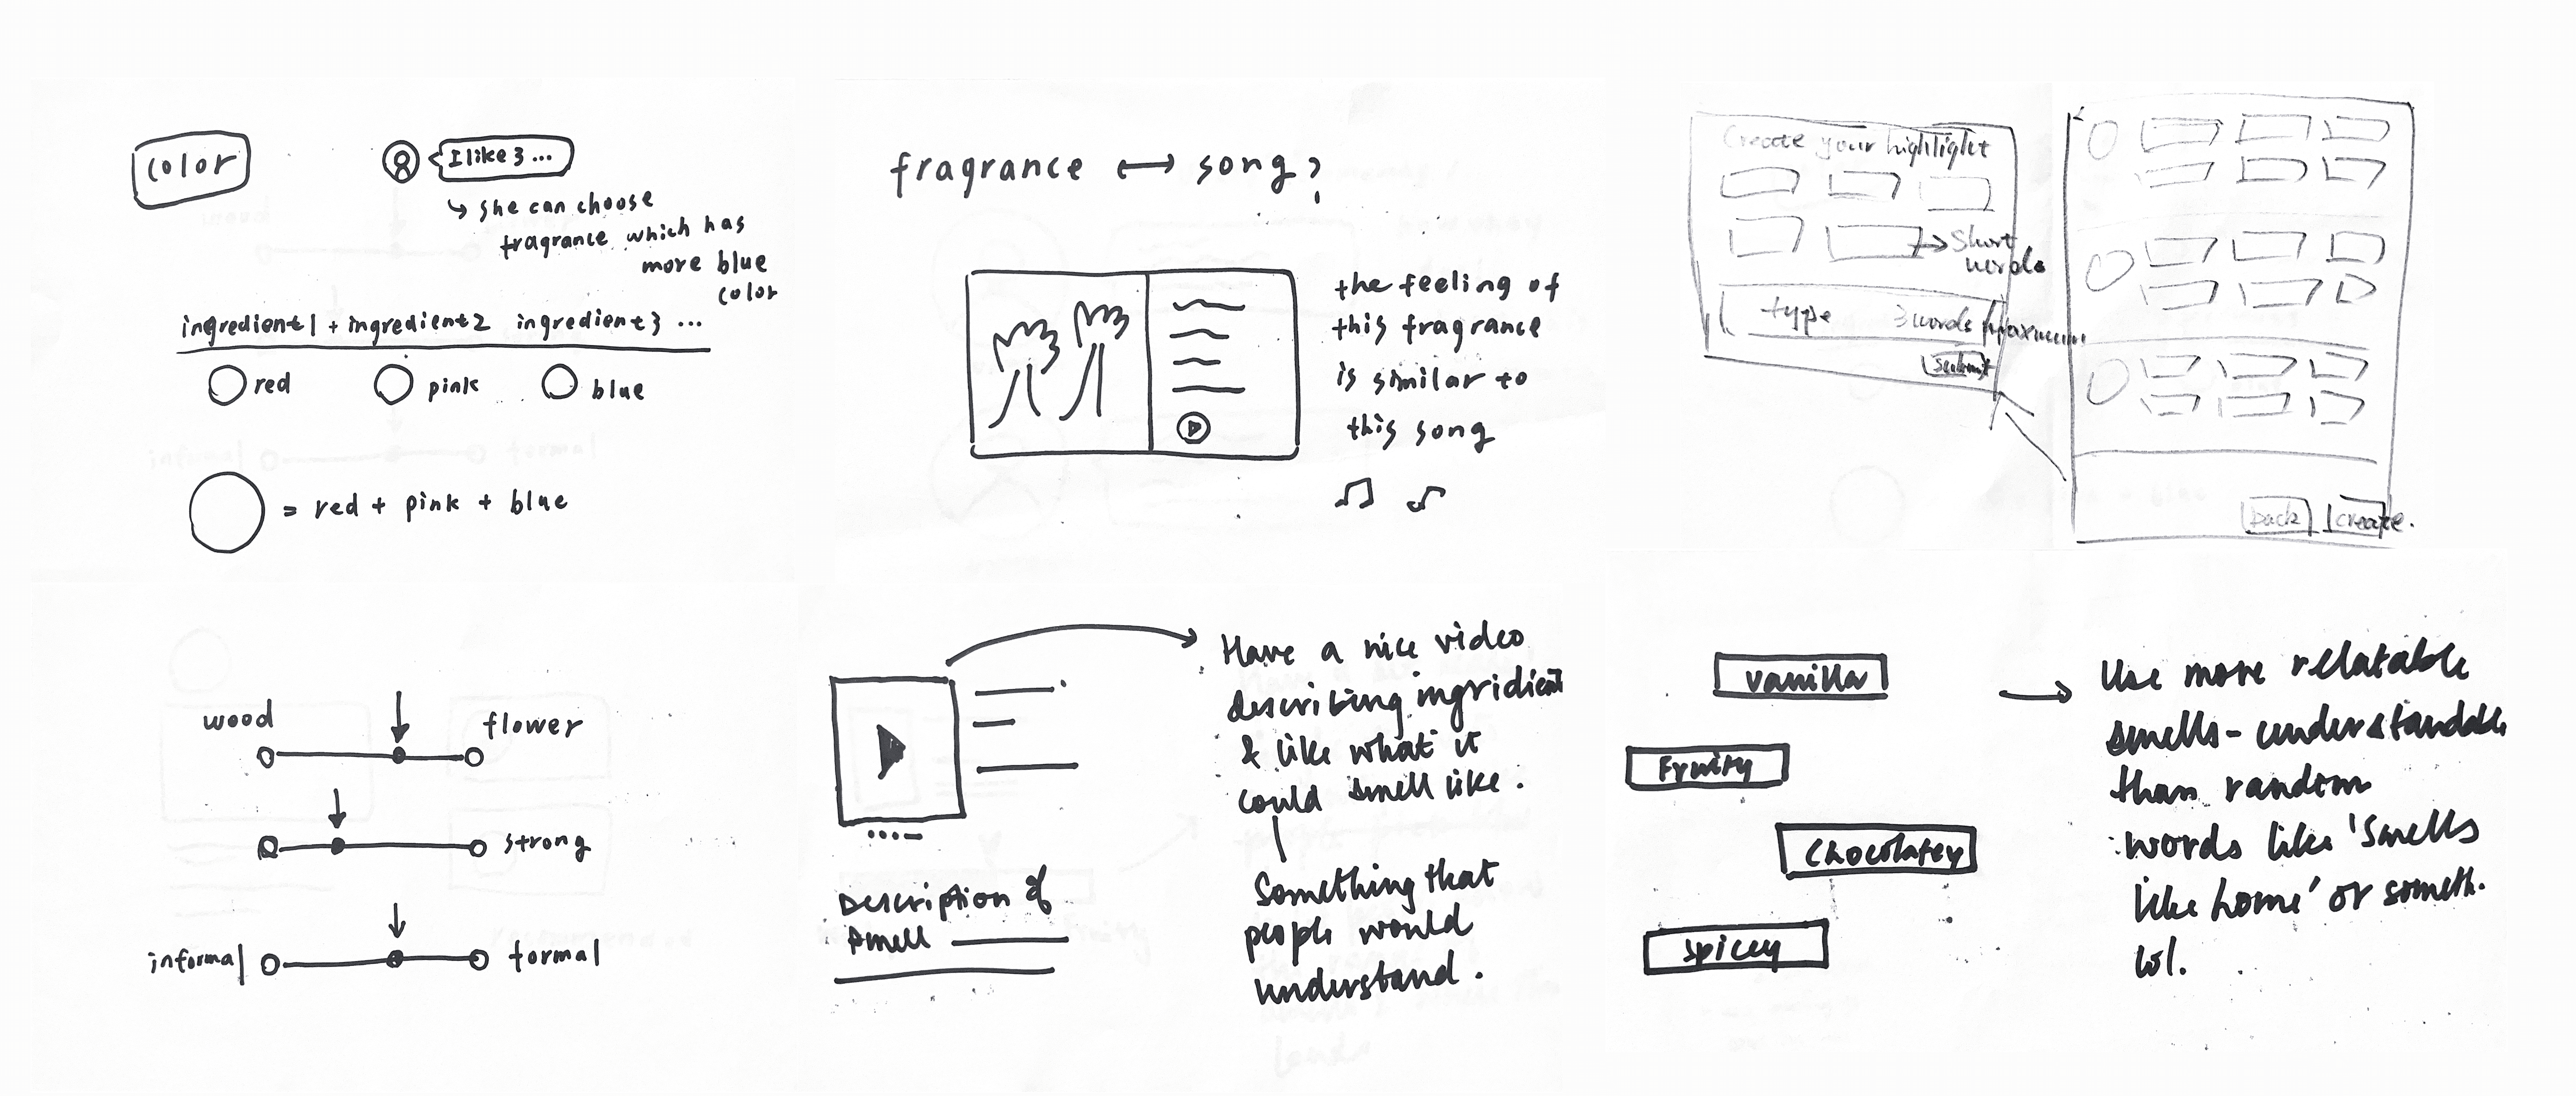 color
I like 3 ...
↳ she can choose
fragrance which has
more blue
color
ingredient1 + ingredient2 ingredient3 ...
red pink blue
= red + pink + blue
fragrance ⟷ song?
the feeling of
this fragrance
is similar to
this song
Create your highlight
→ Short
words
type 3 words Maximum
Submit
back create.
wood flower
strong
informal formal
Have a nice video
describing ingridient
& like what it
could smell like.
Something that
people would
understand.
Description of
smell
vanilla
Fruity
Chocolatey
Spicey
→ Use more relatable
smells - understandable
than random
words like 'smells
like home' or someth.
lol.